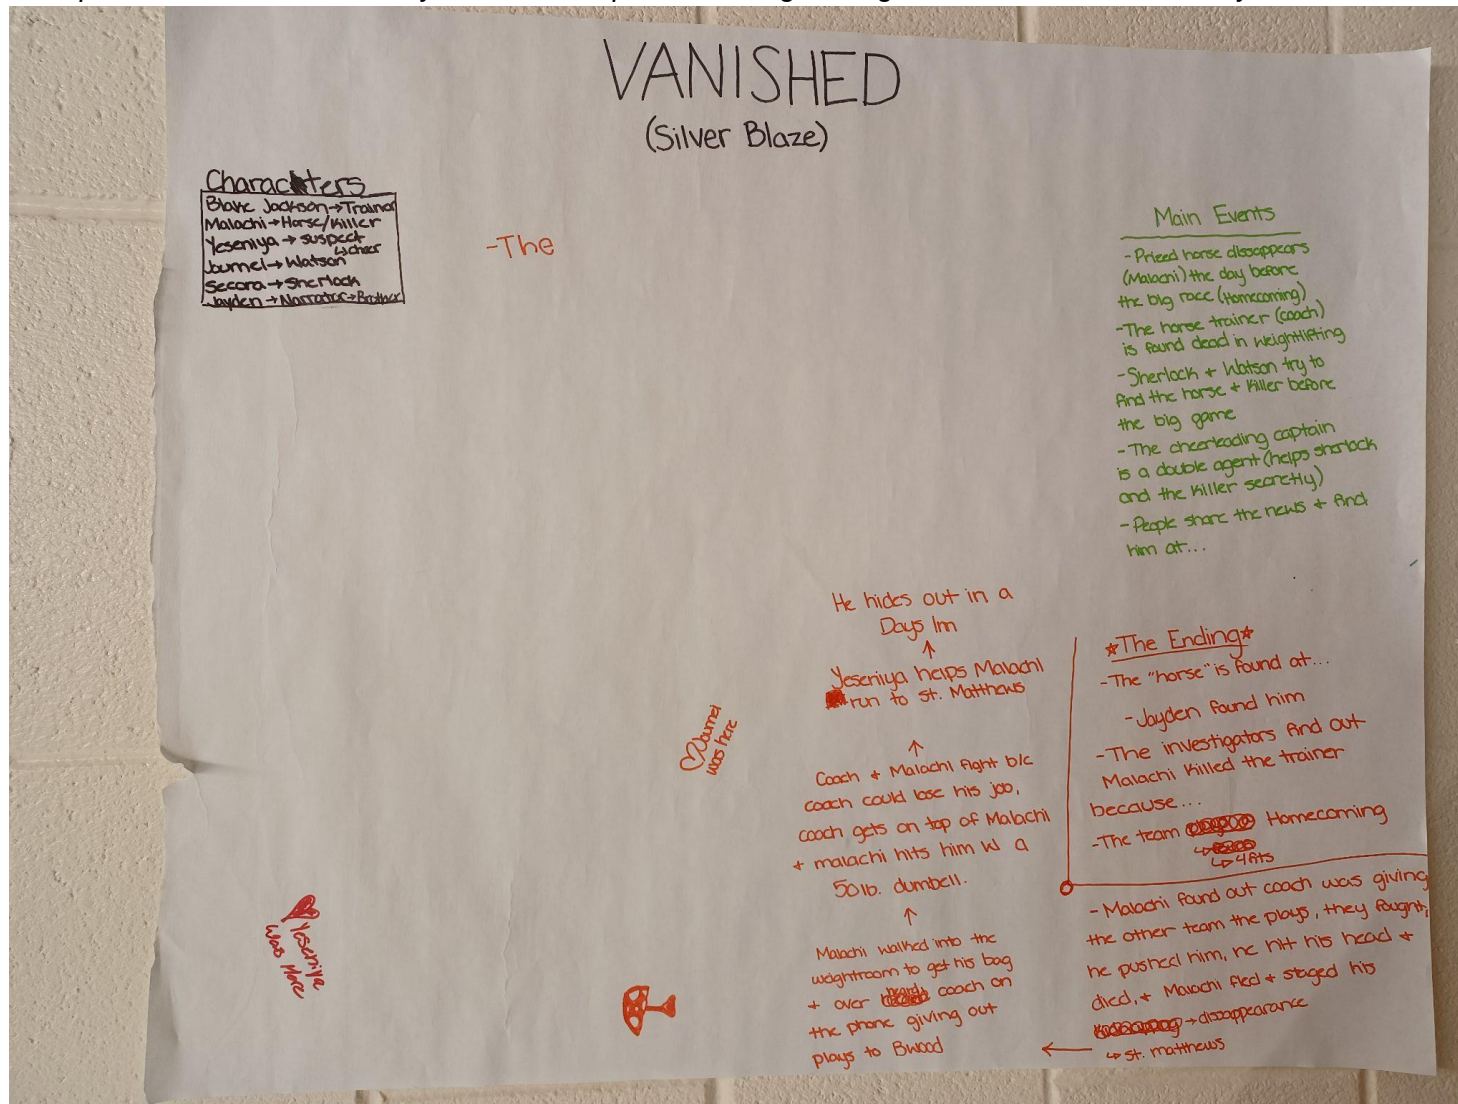 VANISHED
(Silver Blaze)
Characters
Blake Jackson→Trainor
Malachi→Horse/Killer
Yeseniya→suspect
↳cheer
Journel→Watson
Secora→Sherlock
Jayden→Narrator→Brother
-The
Main Events
-Prized horse dissappears
(Malachi) the day before
the big race (Homecoming)
-The horse trainer (coach)
is found dead in weightlifting
-Sherlock + Watson try to
find the horse + killer before
the big game
-The cheerleading captain
is a double agent (helps sherlock
and the killer secretly)
-People share the news + find
him at...
He hides out in a
Days Inn
↑
Yeseniya helps Malachi
run to St. Matthews
↑
Coach + Malachi fight b/c
coach could lose his job,
coach gets on top of Malachi
+ malachi hits him w a
50lb. dumbell.
↑
Malachi walked into the
weightroom to get his bag
+ over heard coach on
the phone giving out
plays to Bwood
←
☆The Ending☆
-The "horse" is found at...
-Jayden found him
-The investigators find out
Malachi killed the trainer
because...
-The team Homecoming
↳
↳4A's
-Malachi found out coach was giving
the other team the plays, they fought,
he pushed him, he hit his head +
died, + Malachi fled + staged his
→dissappearance
↳St. matthews
♡Journel
was here
♡Yeseniya
was Here